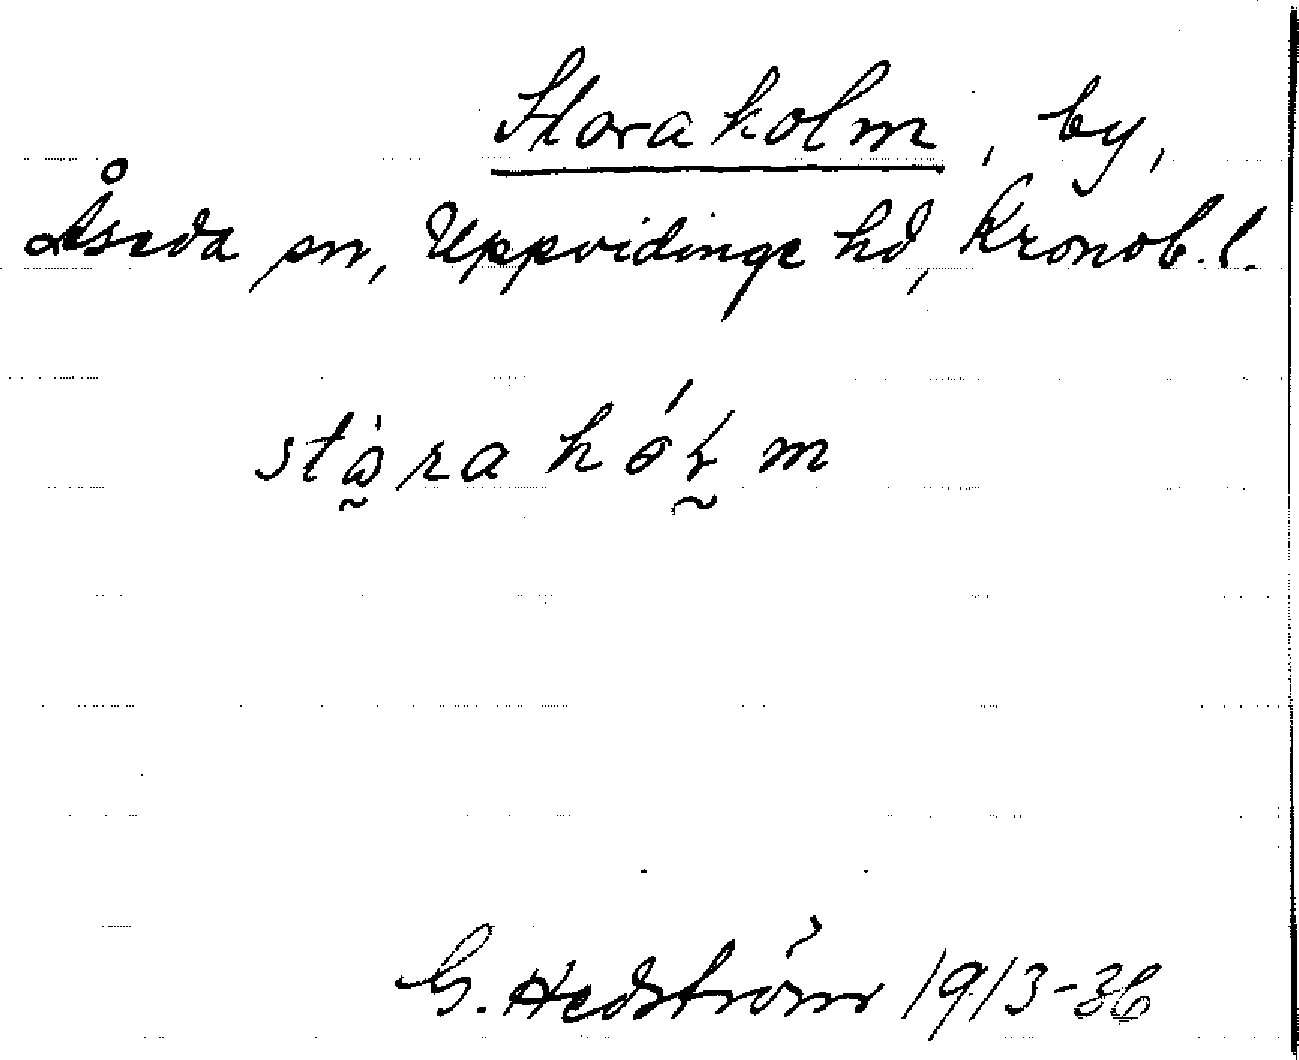 Storaholm, by,
Åseda sn, Uppvidinge hd, Kronob. l.
stⱥ̀ra hóⱡm
G. Hedström 1913-36